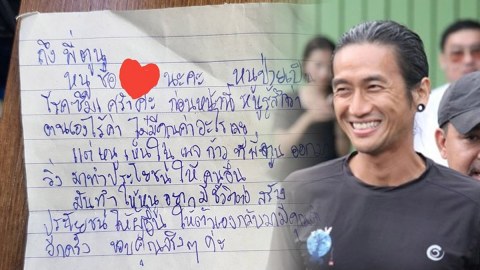 ถึง พี่ตูน
หนูชื่อ นะคะ หนูป่วยเป็น
โรคซึมเศร้าค่ะ ก่อนหน้านี้ หนูรู้สึกว่า
ตนเองไร้ค่า ไม่มีคุณค่าอะไรเลย
แต่หนูเห็นในทุกก้าวที่พี่ตูน
วิ่ง มาทำประโยชน์ให้คนอื่น
มันทำให้หนูอยากมีชีวิตอยู่ สร้าง
ประโยชน์ ให้ผู้อื่น ให้ตัวเองกลับมามี
อีกครั้ง ขอบคุณจริงๆ ค่ะ